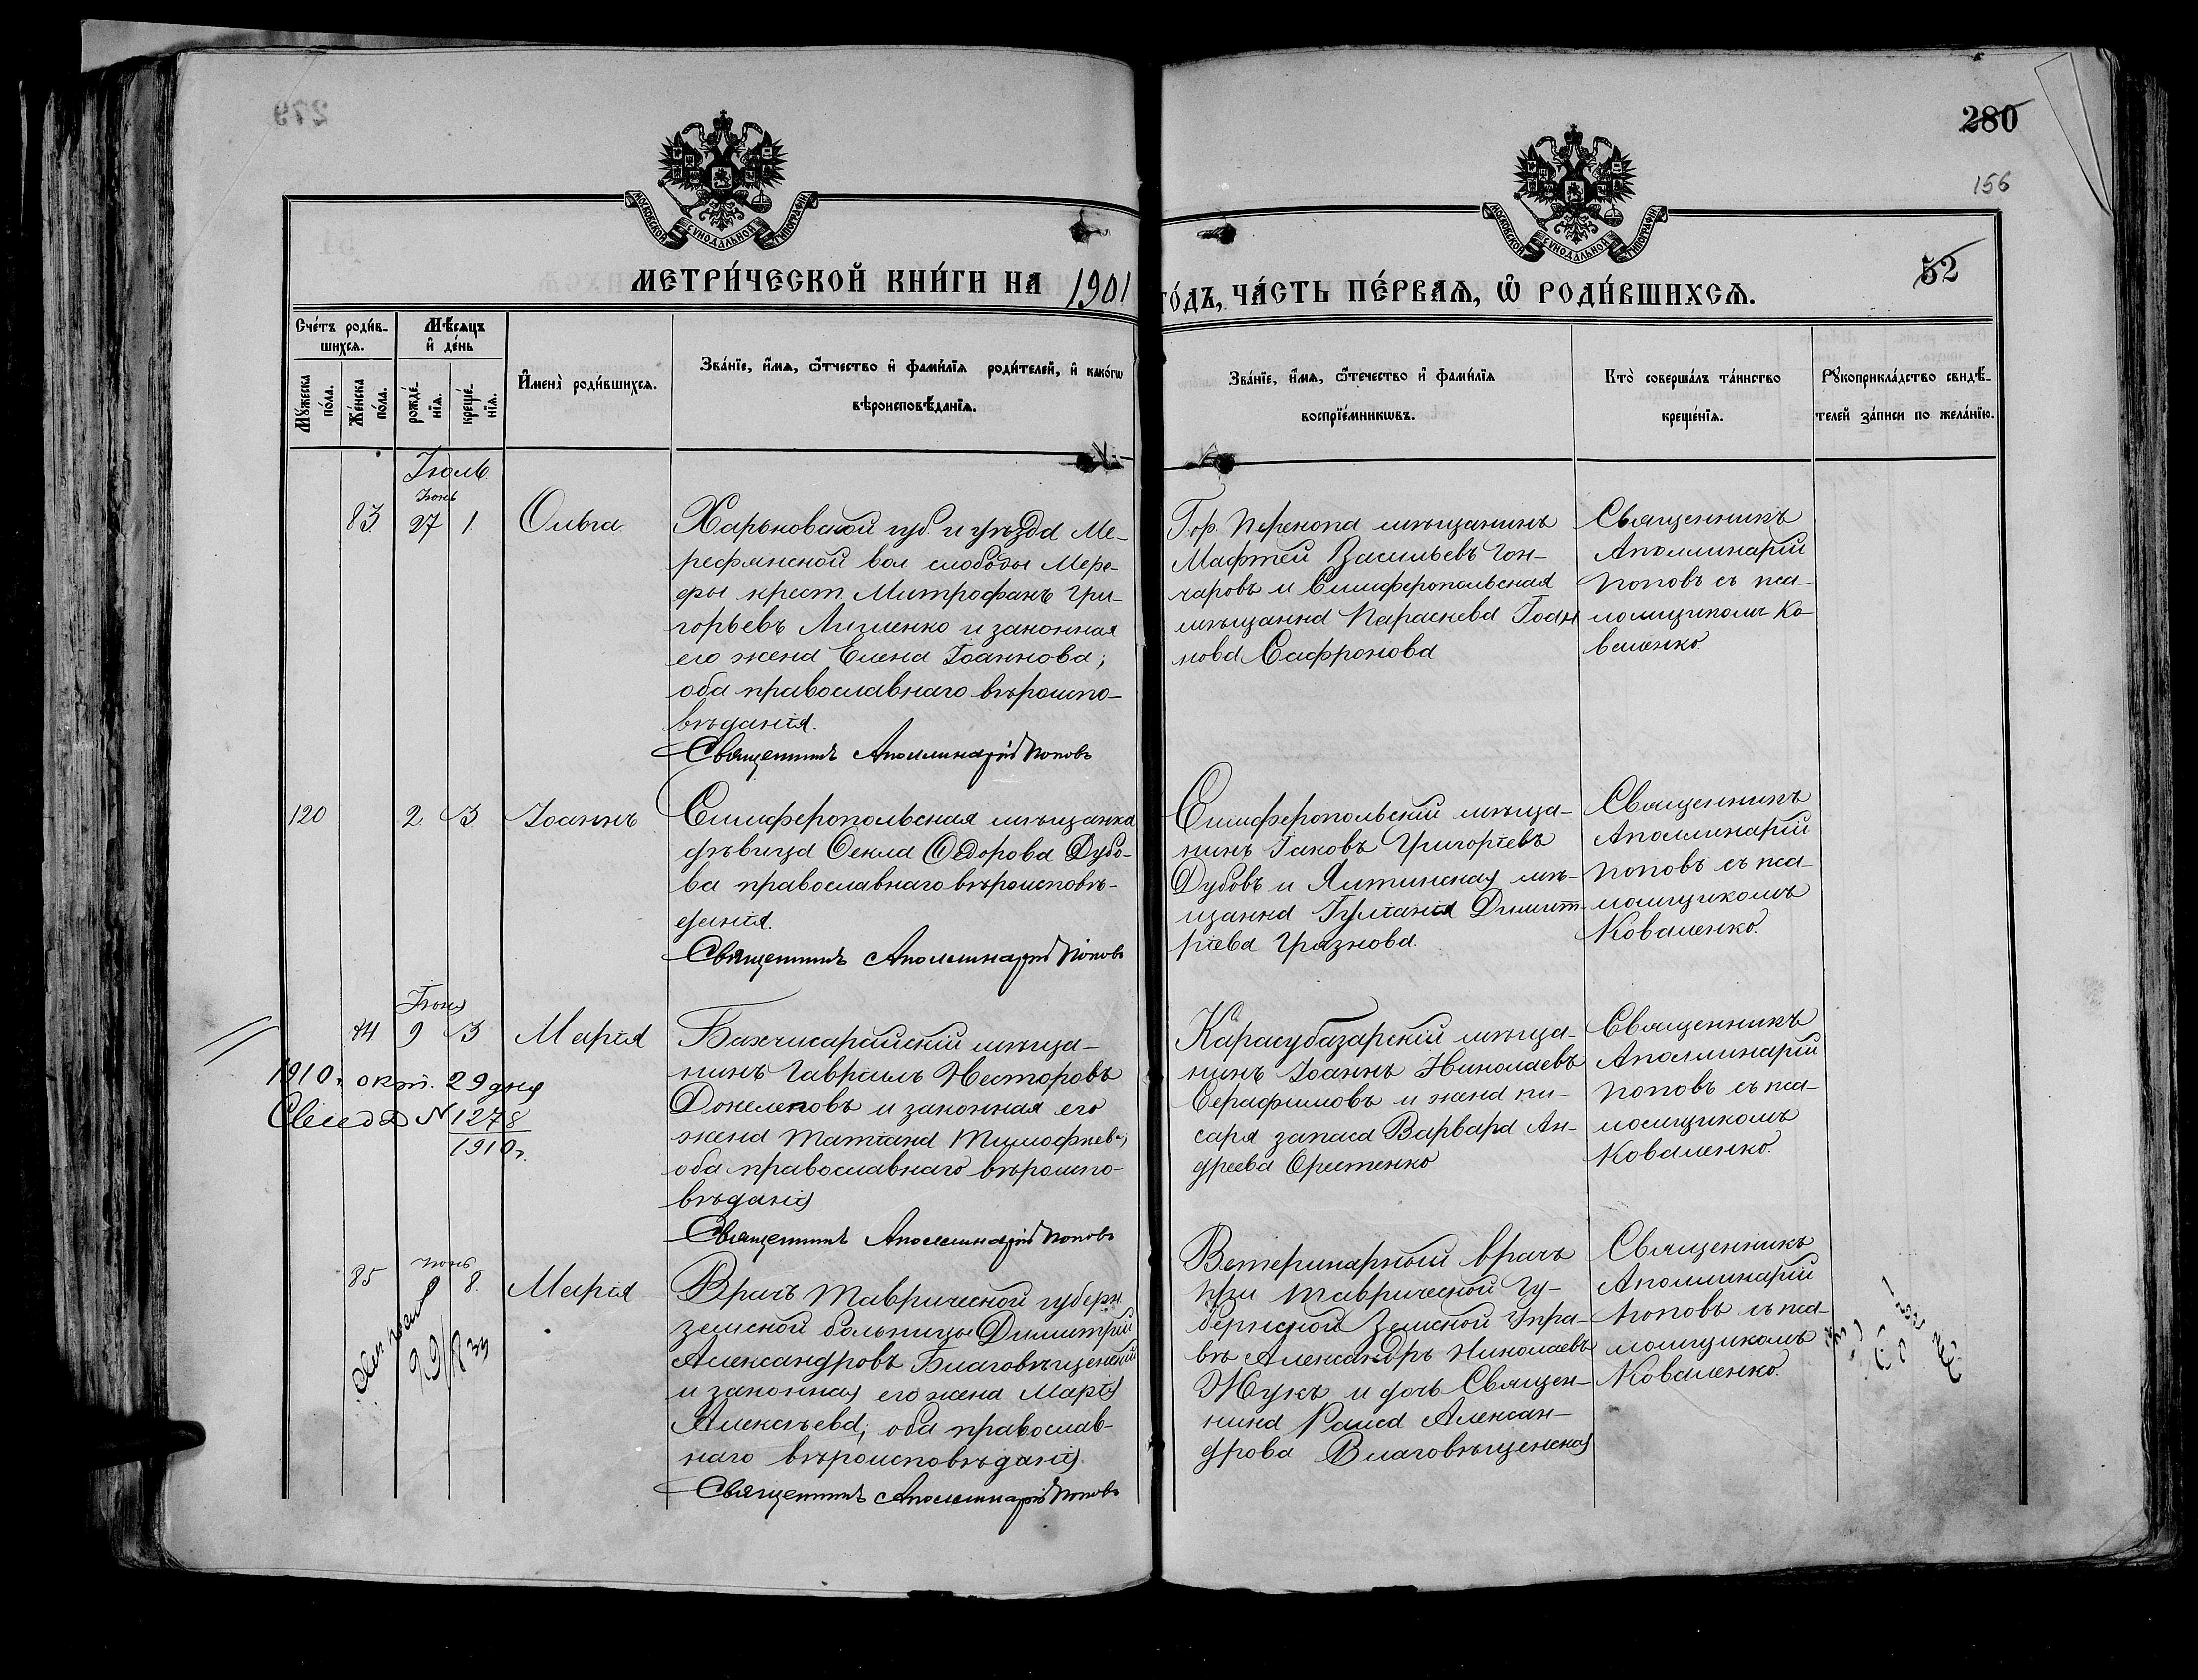 279
280
156
52
МОСКОВСКОЙ СУНОДАЛЬНОЙ ТИПОГРАФІИ
МОСКОВСКОЙ СУНОДАЛЬНОЙ ТИПОГРАФІИ
МЕТРИ́ЧЕСКОЙ КНИ́ГИ НА 1901
ГО́ДЪ, ЧА́СТЬ ПЕ́РВАѦ, Ѡ РОДИ́ВШИХСѦ.
Счéтъ роди́в-
шихсѧ.
Мѣ́сѧцъ
и҆ де́нь
Мꙋ́жеска
по́ла.
Же́нска
по́ла.
рожде́-
нїѧ.
креще́-
нїѧ.
И҆мена̀ роди́вшихсѧ.
Зва́нїе, и҆́мѧ, ѻ҆́тчество и҆ фами́лїѧ роди́телей, и҆ како́гѡ
вѣроисповѣ́данїѧ.
Зва́нїе, и҆́мѧ, ѻ҆те́чество и҆ фами́лїѧ
воспрїе́мникѡвъ.
Кто̀ соверша́лъ та́инство
креще́нїѧ.
Рꙋкоприкла́дство свидѣ́-
телей за́писи по жела́нїю.
Іюль.
Іюнь
83 27 1. Ольга
Харьковской губ. и уѣзда Ме-
рефянской вол слободы Мере-
фы крест. Митрофанъ Гри-
горьевъ и законная
его жена Елена Іоаннова;
оба православнаго вѣроиспо-
вѣданія.
Священникъ Аполлинарій Поповъ
Гор. Перекопа мѣщанинъ
Мафтей Васильевъ Гон-
чаровъ и Симферопольская
мѣщанка Параскева Іоан
нова Сафронова
Священникъ
Аполлинарій
Поповъ съ пса-
ломщикомъ Ко-
валенко.
120 2 3 Іоаннъ
Симферопольская мѣщанка
дѣвица Ѳекла Ѳедорова Дубо-
ва православнаго вѣроисповѣ-
данія.
Священникъ Аполлинарій Поповъ
Симферопольскій мѣща-
нинъ Іаковъ Григоріевъ
Дубовъ и Ялтинская мѣ-
щанка Іуліанія Димит-
ріева Грязнова.
Священникъ
Аполлинарій
Поповъ съ пса-
ломщикомъ
Коваленко.
Іюня
44 9 3 Марія
1910 г. окт. 29 дня
№ 1278
1910 г.
Бахчисарайскій мѣща-
нинъ Гавріилъ Несторовъ
и законная его
жена Татіана Тимофѣева;
оба православнаго вѣроиспо-
вѣданія
Священникъ Аполлинарій Поповъ
Карасубазарскій мѣща-
нинъ Іоаннъ Николаевъ
Серафимовъ и жена пи-
саря запаса Варвара Ан-
дреева Орестенко
Священникъ
Аполлинарій
Поповъ съ пса-
ломщикомъ
Коваленко.
іюнь
85 9 8. Марія
Врачъ Таврической губерн.
земской больницы Димитрій
Александровъ Благовѣщенскій
и законная его жена Марія
Алексѣева; оба православ-
наго вѣроисповѣданія.
Священникъ Аполлинарій Поповъ
Ветеринарный врачъ
при Таврической Гу-
бернской Земской Упра-
вѣ Александръ Николаевъ
Жукъ и дочь Священ-
ника Раиса Алексан-
дрова Благовѣщенская
Священникъ
Аполлинарій
Поповъ съ пса-
ломщикомъ
Коваленко.